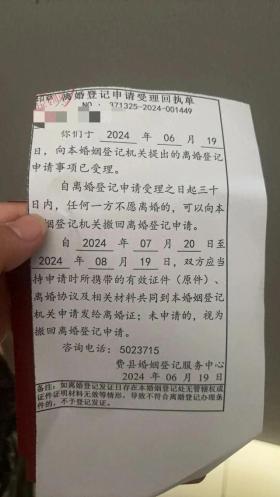 离婚登记申请受理回执单
NO：371325-2024-001449
你们于 2024 年 06 月 19
日，向本婚姻登记机关提出的离婚登记
申请事项已受理。
自离婚登记申请受理之日起三十
日内，任何一方不愿离婚的，可以向本
姻登记机关撤回离婚登记申请。
自 2024 年 07 月 20 日至
2024 年 08 月 19 日，双方应当
持申请时所携带的有效证件（原件）、
离婚协议及相关材料共同到本婚姻登记
机关申请发给离婚证；未申请的，视为
撤回离婚登记申请。
咨询电话：5023715
费县婚姻登记服务中心
2024 年 06 月 19 日
备注：如离婚登记发证日存在本婚姻登记处无管辖权或
证件证明材料无效等情形，导致不符合离婚登记办理条
件的，不予登记发证。